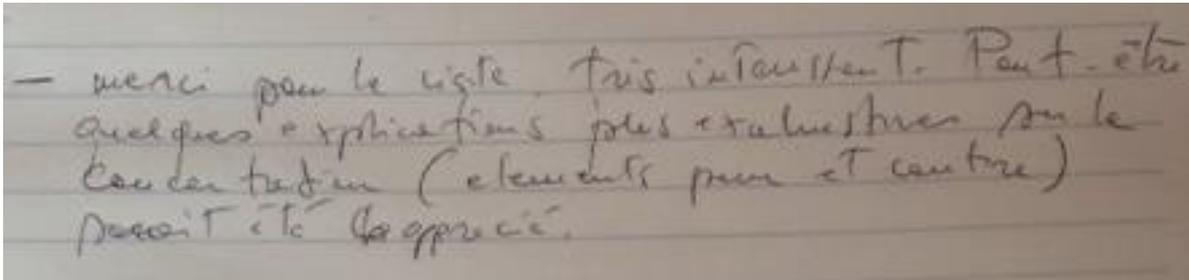 — merci pour la visite, très intéressant. Peut-être
quelques explications plus exhaustives sur la
concertation (elements pour et contre)
serait été apprecié.